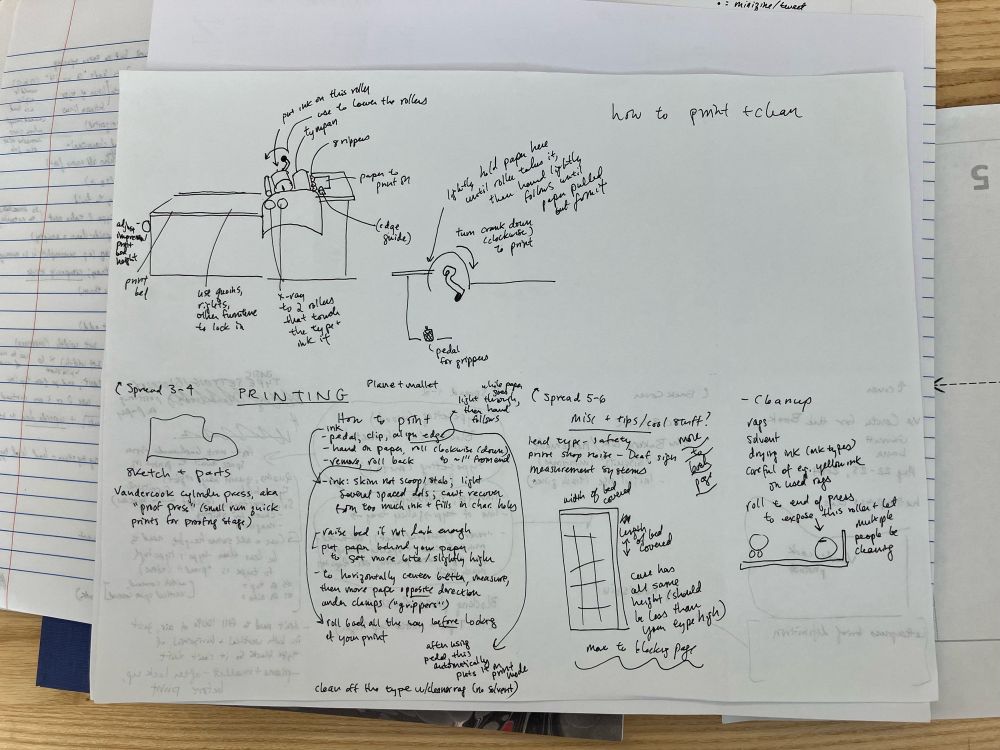 •: minizine/tweet
how to print + clean
put ink on this roller
use to lower the rollers
tympan
grippers
paper to
print on
(edge
guide)
adjust
impression/
print
bed
height
print
bed
use quoins,
other furniture
to lock in
x-ray
to 2 rollers
that touch
the type +
ink it
lightly hold paper here
until roller takes it,
then hand lightly
follows until
paper pulled
out from it
turn crank down
(clockwise)
to print
pedal
for grippers
Spread 3-4
PRINTING
Sketch + parts
Vandercook cylinder press, aka
"proof press" (small run quick
prints for proofing stage)
Plane + mallet
How to print
while paper
light through,
then hand
follows
- ink
- pedal, clip, align edge
- hand on paper, roll clockwise (down)
- remove, roll back to ~1" from end
- ink: skim not scoop/stab; light
several spaced dots; can't recover
from too much ink + fills in char holes
- raise bed if not dark enough
- put paper behind your paper
to get more bite/slightly higher
- to horizontally center better, measure,
then move paper opposite direction
under clamps ("grippers")
- roll back all the way before looking
at your print
after using
pedal, this
automatically
puts it in print
mode
clean off the type w/cleaner rag (no solvent)
Spread 5-6
misc + tips/cool stuff?
lead type - safety
print shop noise - Deaf, sign
measurement systems
more
to
back
page
width of bed
covered
length
of bed
covered
case has
all same
height (should
be less than
your type high)
move to blocking page
- Cleanup
rags
solvent
drying ink (ink types)
careful of eg. yellow ink
on used rags
roll to end of press
to expose this roller + let
multiple
people be
cleaning
5